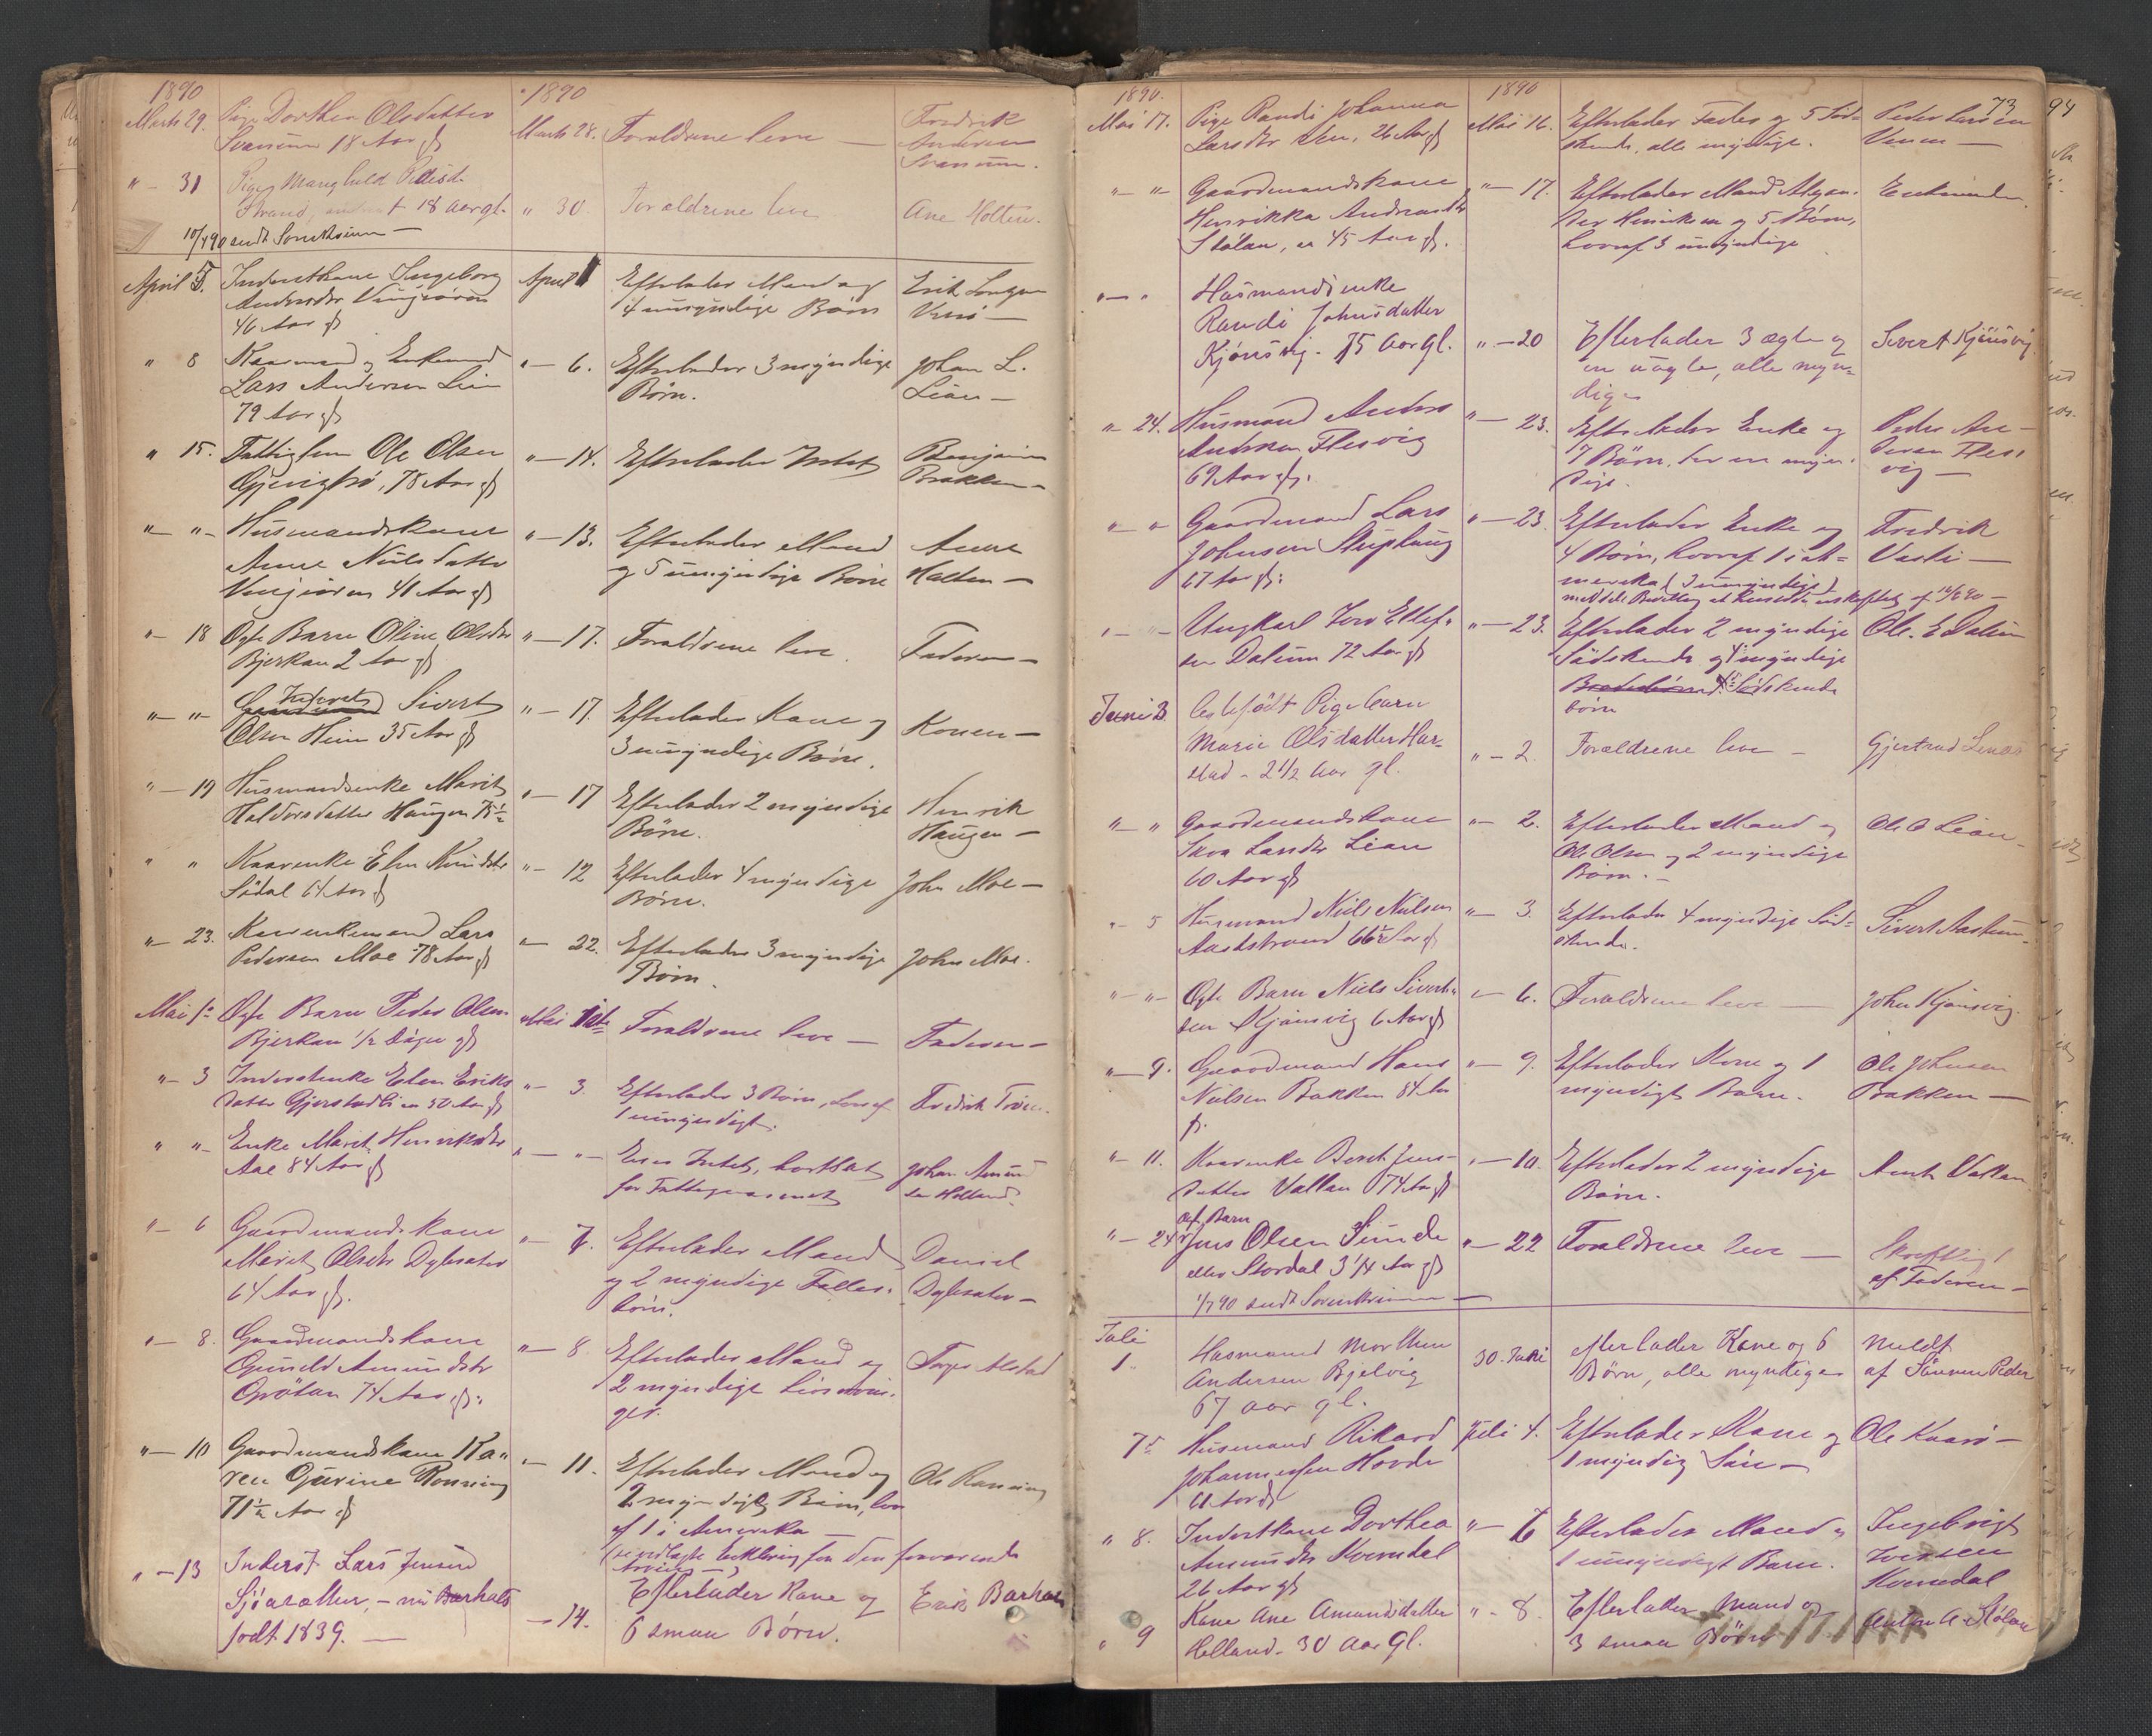 1890
1890
Marts 29. Pige Dorthea Olsdatter
Svanum 18 Aar gl
Marts 28. Forældrene leve —
Fredrik
Andersen
Svanum.
" – 31 Pige Marghuld Pedersd.
Strand, 18 aar gl.
" 30. Forældrene leve
Ane Holten.
10/4 90 sendt Sorenskriveren —
April 5. Inderstkone Ingeborg
Andersdtr Vingiøren
46 Aar gl
April 1 Efterlader Mand og
4 umyndige Børn
Erik
Vinsi —
" 8 Kaarmand og Enkemand
Lars Andersen Lien
79 Aar gl
" – 6. Efterlader 3 myndige
Børn.
Johan L.
Lian —
" 15. Fattiglem Ole Olsen
78 Aar gl
" – 14. Efterlader Intet
Benjamin
Brækken –
" – " – Husmandskone
Anne Nilsdatter
Vingiøren 41 Aar gl
" – 13. Efterlader Mand
og 5 umyndige Børn
Anne
Halten —
" – 18 Ægte Barn Oline Olsdtr
Bjerkan 2 Aar gl
" – 17. Forældrene leve.
Faderen —
" – " – Inderst Sivert
Olsen Hein 35 Aar gl
" – 17. Efterlader Kone og
3 umyndige Børn.
Konen —
" – 19 Husmandsenke Marit
Haldorsdatter Haugen 75 1/2
" – 17 Efterlader 2 myndige
Børn.
Henrik
Haugen —
" " Kaarenke Elen Knudsdtr
Södal 64 Aar gl
" – 12 Efterlader 4 myndige
Børn.
John Moe —
" – 23. Kaarenkemand Lars
Pedersen Moe 78 Aar gl
" – 22. Efterlader 3 myndige
Børn.
John Moe.
Mai 1. Ægte Barn Peder Olsen
Bjerkan 1/2 Døgn gl
Mai 1ste Forældrene leve —
Faderen —
" – 3 Inderstenke Elen Eriks
datter Gjerstadlien 50 Aar gl
" – 3. Efterlader 3 Børn, hvoraf
1 umyndigt.
Fredrik
" " – Enke Marit Henriksdtr
Aae 84 Aar gl
" – " – Eier Intet, bortsat
for Fattigvæsenet
Johan Amund
sen Holland.
" – 6 Gaardmandskone
Marit Olsdtr Dylsæter
64 Aar gl.
" – 7. Efterlader Mand
og 2 myndige Fælles
børn.
Daniel
Dylsæter —
" – 8. Gaardmandskone
Gunild Amundsdtr
Grötan 74 Aar gl.
" – 8. Efterlader Mand og
2 myndige Livsarvin-
ger.
Alstad
" – 10 Gaardmandskone Ka-
ren Gurine Rønning
71 1/2 Aar gl
" – 11. Efterlader Mand og
2 myndige Børn, hvor
af 1 i Amerika —
Erklæring fra den fraværende
Ole Rønning
" – 13 Inderst Lars Jensen
Sjøasætter, – nu Barhals
født 1839. —
– 14. Efterlader Kone og
6 smaa Børn.
Erik Barhals
73
94
1890.
1890
Mai 17. Pige Randi Johanna
Larsdtr 26 Aar gl
Mai 16. Efterlader Fader og 5 Sød-
skende, alle myndige.
Peder Larsen
" – " Gaardmandskone
Henrikka Andreasdtr
Stölan, er 45 Aar gl.
" – 17. Efterlader Mand
Henriksen og 5 Børn,
hvoraf 3 umyndige
Enkemanden.
" – " Husmandsenke
Randi Johnsdatter
Kjönsvig. 75 Aar gl.
" – 20 Efterlader 3 ægte og
en uægte, alle myn-
dige
Sivert Kjönsvig.
" – 24. Husmand Anders
Andersen Flesvig
69 Aar gl.
" – 23. Efterlader Enke og
7 Børn, myn-
dige.
Peder An-
dersen Fles
vig —
" – " Gaardmand Lars
Johnsen
67 Aar gl.
" – 23. Efterlader Enke og
4 Børn, hvoraf 1 i A-
merika (3 umyndige)
Fredrik
" – " – Ungkarl Iver Ellef-
sen Dalum 72 Aar gl
" – 23. Efterlader 2 myndige
Södskende og 4 myndige
Södskende
børn
Ole. E Dalum
Juni 3. Ægtefødt Pigebarn
Marie Olsdatter Har-
stad – 2 1/2 Aar gl.
" – 2. Forældrene leve –
Gjertrud
" – " Gaardmandskone
Larsdtr Lian
60 Aar gl
" – 2. Efterlader Mand
Ole Olsen og 2 myndige
Børn. –
Ole O Lian –
" – 5 Husmand Niels Nielsen
Aastrand 66 1/2 Aar gl
" – 3. Efterlader 4 myndige Söd-
skende.
Sivert Aastrum
" – " – Ægte Barn Niels Siverts-
sen Kjönsvig 6 Aar gl
" – 6. Forældrene leve —
John Kjönsvig.
" – 9. Gaardmand Hans
Nielsen Bakken 84 Aar
gl.
" – 9. Efterlader Kone og 1
myndigt Barn.
Ole Johnsen
Bakken —
" – 11. Kaarenke Berit Jens-
datter Vallan 74 Aar gl
" – 10. Efterlader 2 myndige
Børn.
Arnt Vallan
" – 24 Æg. Barn
Jens Olsen Sunde
eller Stordal 3 1/4 Aar gl
" – 22 Forældrene leve —
Skriftlig
af Faderen —
1/7 90 sendt Sorenskriveren —
Juli
1. Husmand Morthen
Andersen Bjelvig
67 aar gl.
30. Juni efterlader Kone og 6
Børn, alle myndige
meldt
af Sönnen Peder
7 Husmand Rikard
Johannessen Hovde
61 Aar gl
Juli 4. Efterlader Kone og
1 myndig Sön —
Ole
" 8. Inderstkone Dorthea
Amundsdtr Kverndal
26 Aar gl
" – 7 Efterlader Mand og
1 umyndigt Barn.
Ingebrigt
Iversen
Kverndal
" 9 Kone Ane Amundsdatter
Helland. 30 Aar gl.
" – 8. Efterlader Mand og
3 smaa Børn
Anton A. Stölan